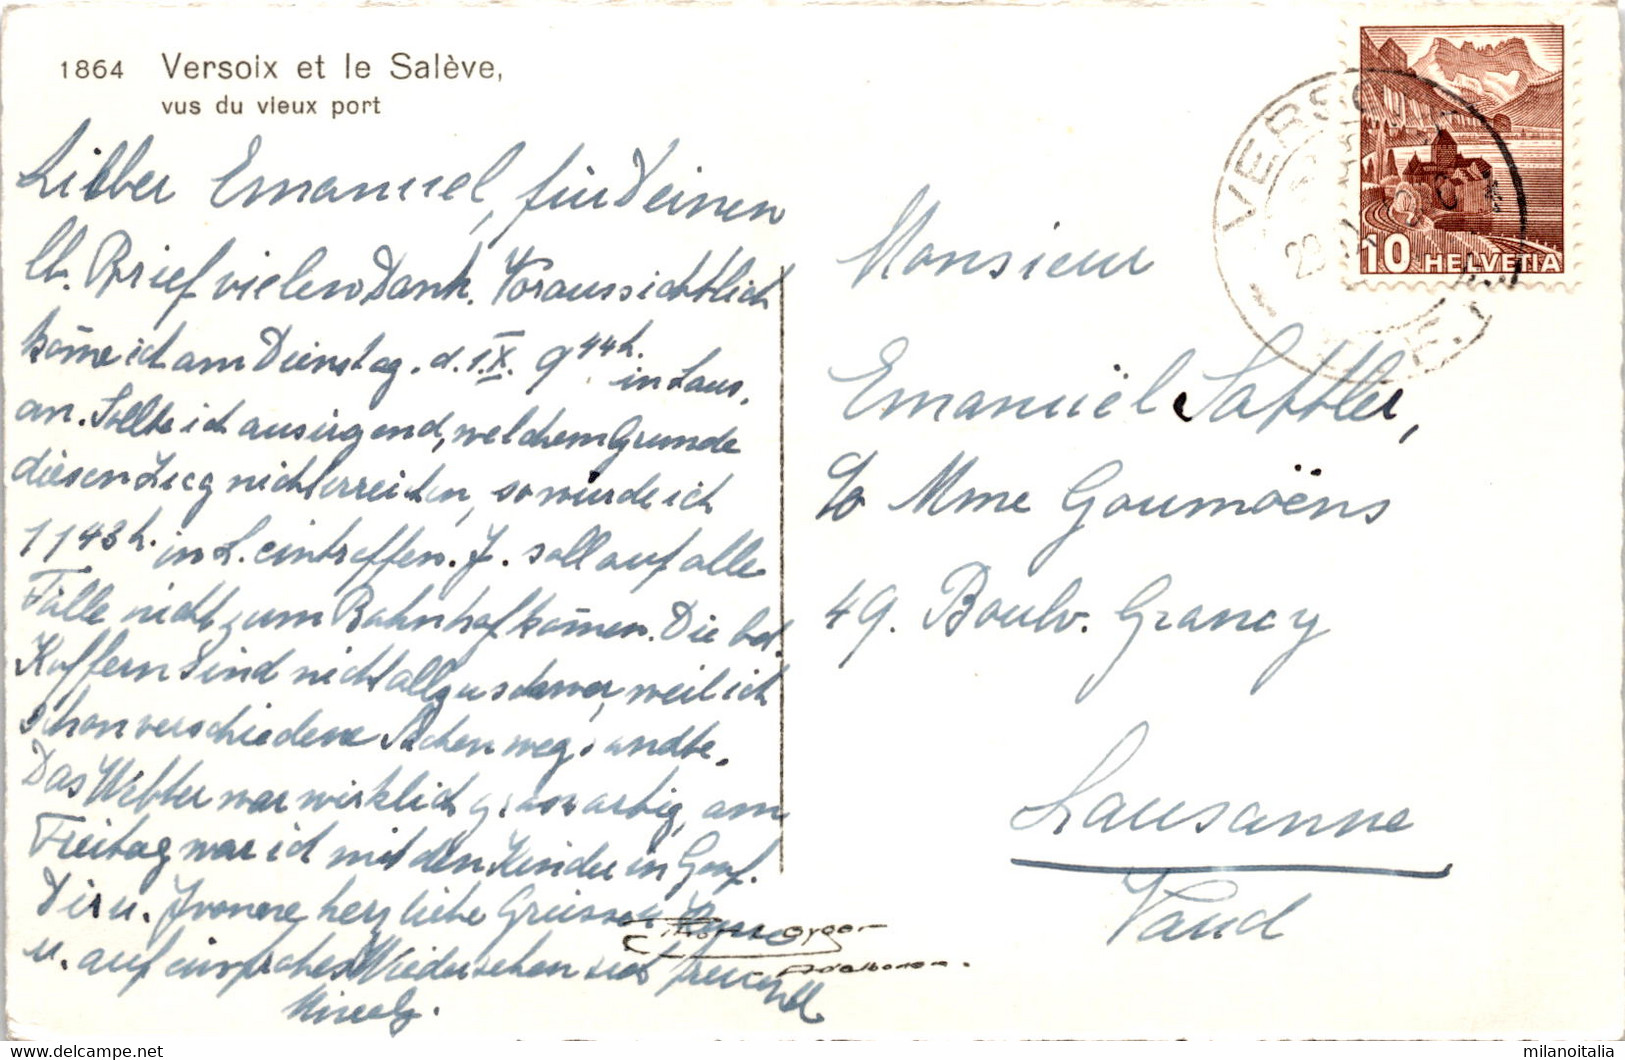 1864 Versoix et le Salève,
vus du vieux port
Lieber Emanuel, für Deinen
lb. Brief vielen Dank. Voraussichtlich
kom̄e ich am Dienstag. d. 1. IX. 9 44 h. in Laus.
an. Sollte ich aus irgend, welchem Grunde
diesen Zug nicht erreichen, so würde ich
11 43 h. in L. eintreffen. J. soll auf alle
Fälle nicht zum Bahnhof kom̄en. Die bd.
Koffern sind nicht allzu schwer, weil ich
schon verschiedene Sachen wegsandte.
Das Wetter war wirklich grossartig, am
Freitag war ich mit den Kinder in Genf.
Dir u. Yvonne herzliche Grüsse
u. auf ein frohes Wiedersehen sich freuend
HELVETIA
10
VERSOIX
Monsieur
Emanuël Sattler,
c/o Mme Goumoëns
49. Boulv. Grancy
Lausanne
Vaud
milanoitalia